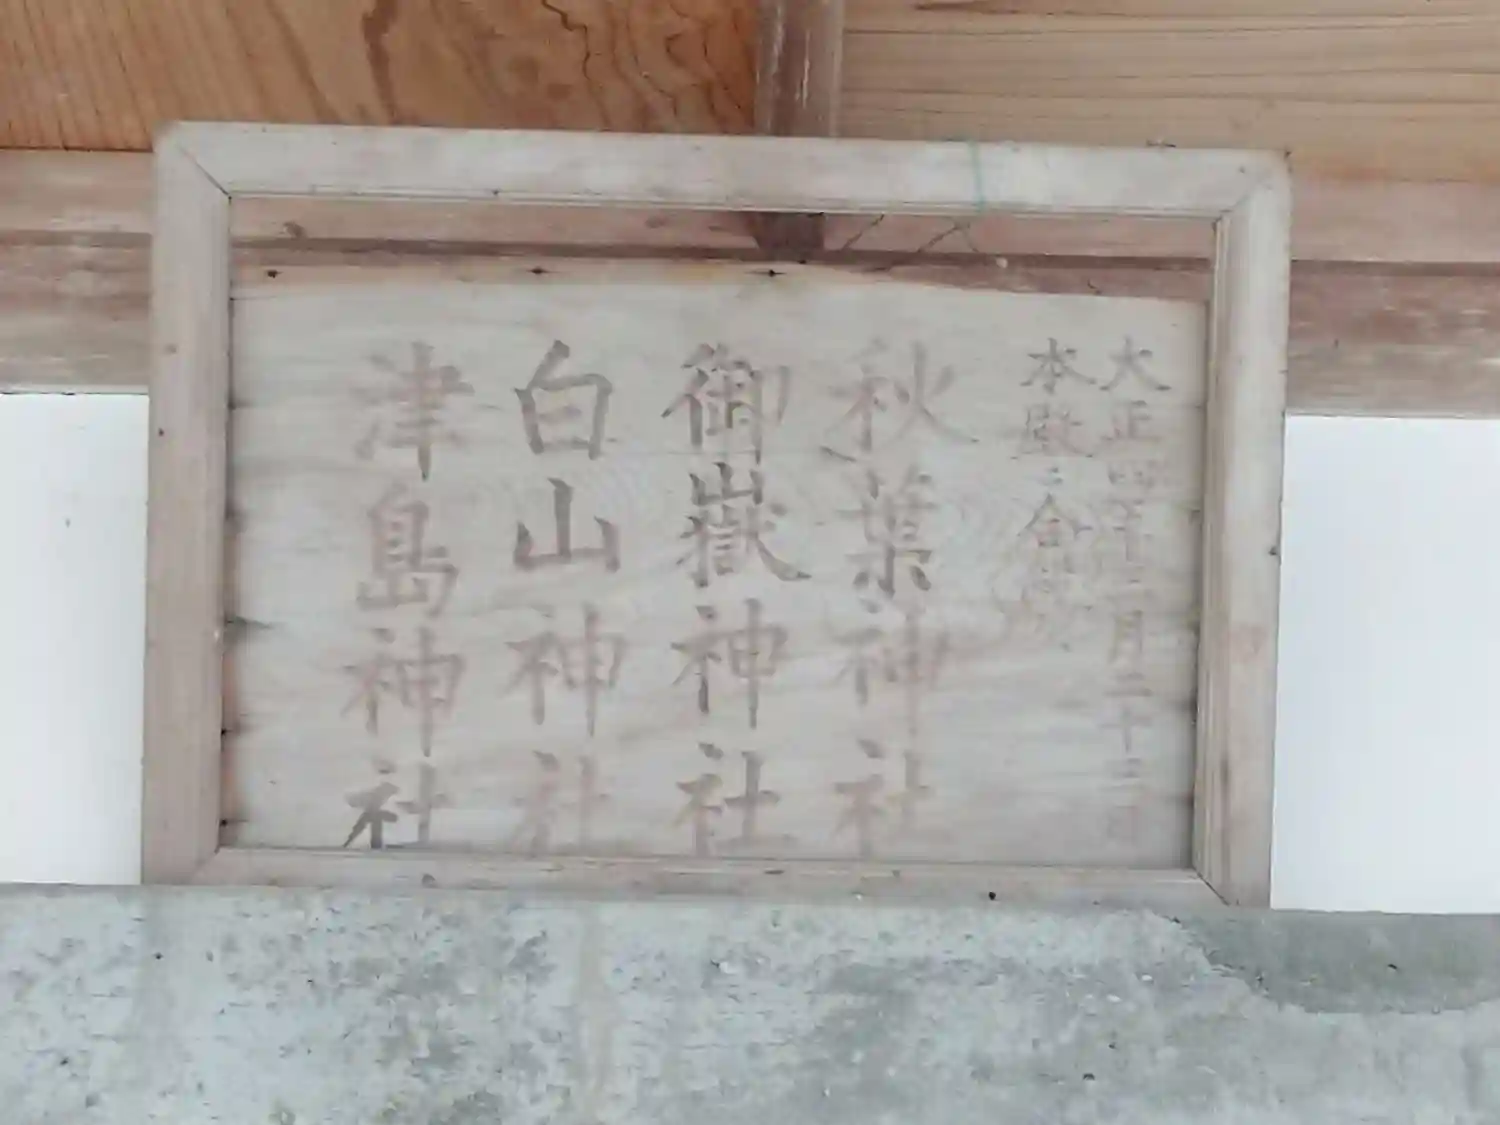 大正四年二月二十二日
本殿ニ合
秋葉神社
御嶽神社
白山神社
津島神社